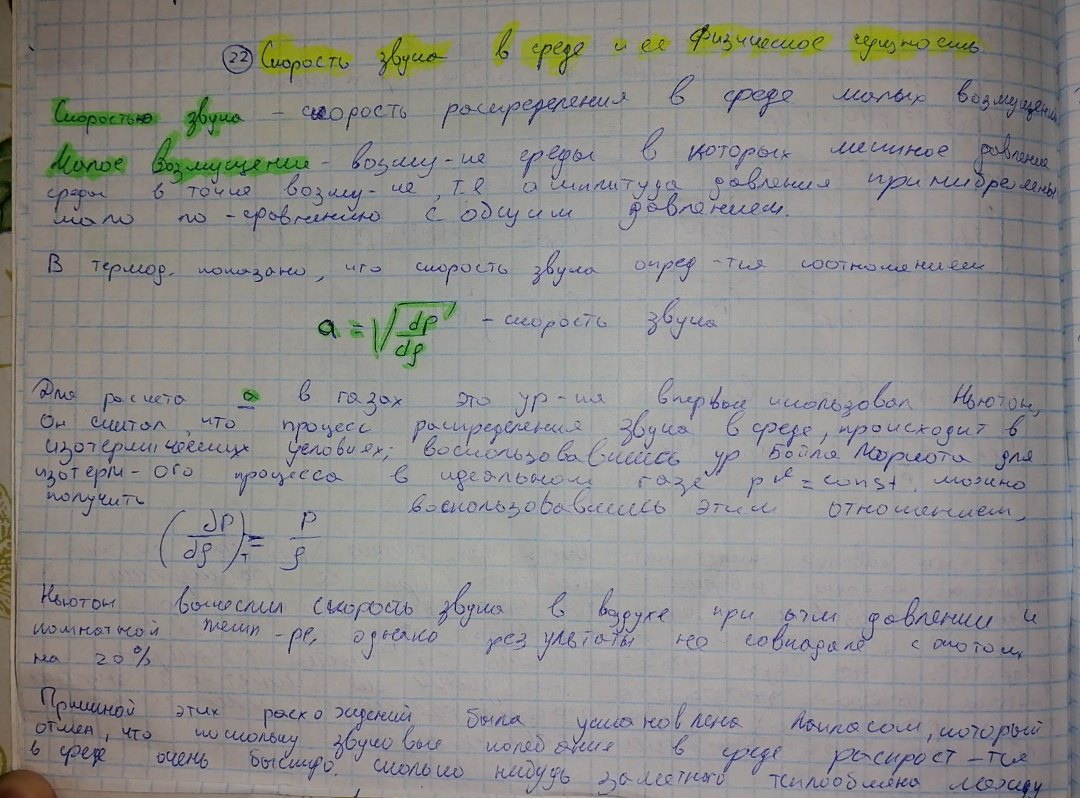 22 Скорость звука в среде и ее Физическое сущность
Скоростью звука - скорость распределения в среде малых возмущений
Малое возмущение - возму-ие среды в которых местное давление
среды в точке возму-ие, т.е амплитуда давления принибрежены
мало по-сравнению с общим давлением.
В термод. показано, что скорость звука опред-тся соотношением
a = √(dp/dρ) - скорость звука
Для расчета a в газах это ур-ия впервые использовал Ньютон,
он считал, что процесс распределения звука в среде, происходит в
изотермических условиях; воспользовавшись ур Бойля Мариота для
изотерм-ого процесса в идеальном газе p = const, можно
получить воспользовавшись этим отношением,
(dP/dρ)т = P/ρ
Ньютон вычислил скорость звука в воздухе при атм давлении и
комнатной темп-ре, однако результаты не совпадале с опытом,
на 20%
Причиной этих расхождений была установлена Лапласом, который
отмеч, что поскольку звуковые колебания в среде распрост-тся
в среде очень быстро. сколько нибудь заметного теплообмена между